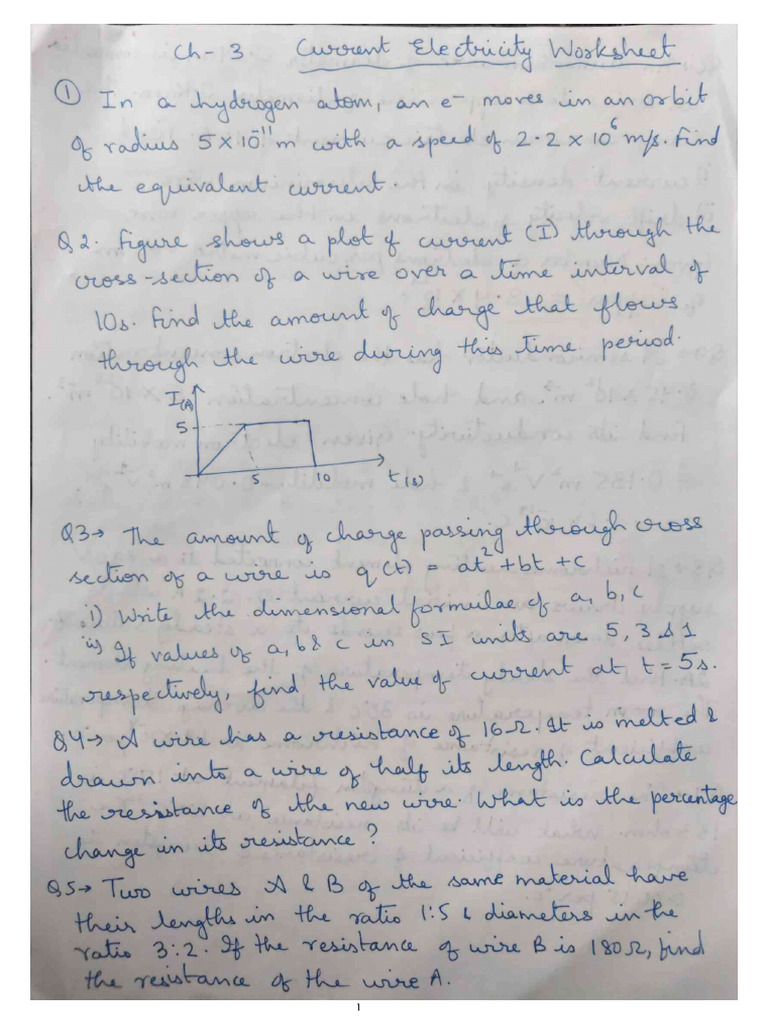 Ch - 3 Current Electricity Worksheet
① In a hydrogen atom, an e⁻ moves in an orbit
of radius 5 × 10⁻¹¹ m with a speed of 2.2 × 10⁶ m/s. Find
the equivalent current.
Q2. Figure shows a plot of current (I) through the
cross-section of a wire over a time interval of
10s. Find the amount of charge that flows
through the wire during this time period.
I(A)
5
5 10 t(s)
Q3→ The amount of charge passing through cross
section of a wire is q(t) = at² + bt + c
i) Write the dimensional formulae of a, b, c
ii) If values of a, b & c in SI units are 5, 3 & 1
respectively, find the value of current at t = 5s.
Q4→ A wire has a resistance of 16Ω. It is melted &
drawn into a wire of half its length. Calculate
the resistance of the new wire. What is the percentage
change in its resistance?
Q5→ Two wires A & B of the same material have
their lengths in the ratio 1:5 & diameters in the
ratio 3:2. If the resistance of wire B is 180Ω, find
the resistance of the wire A.
1